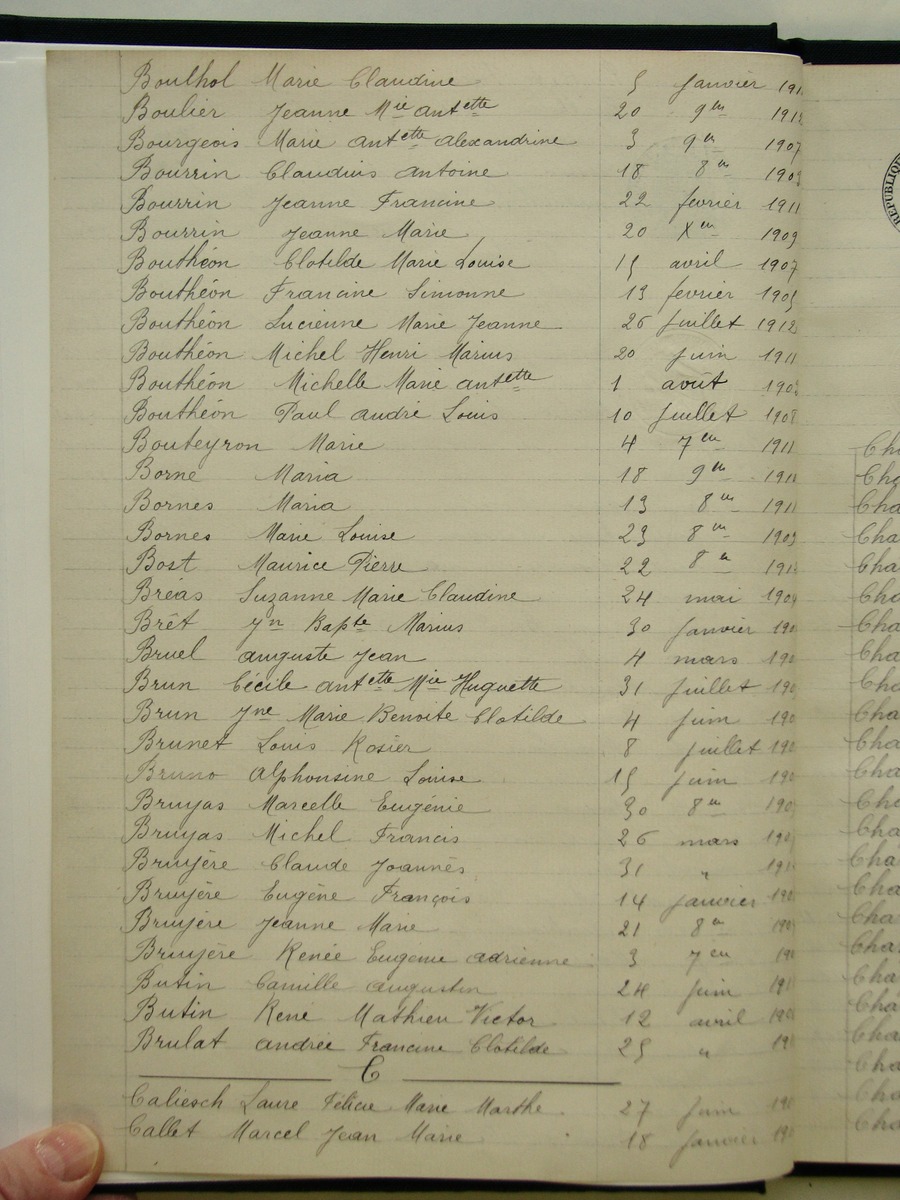 Boulhol Marie Claudine 5 Janvier 191
Boulier Jeanne Mie Antette 20 9em 1912
Bourgeois Marie Antette Alexandrine 3 9em 1907
Bourrin Claudius Antoine 18 8em 190
Bourrin Jeanne Francine 22 février 1911
Bourrin Jeanne Marie 20 Xem 1909
Bouthéon Clotilde Marie Louise 15 avril 1907
Bouthéon Francine Simonne 13 février 1905
Bouthéon Lucienne Marie Jeanne 26 Juillet 1912
Bouthéon Michel Henri Marius 20 Juin 1911
Bouthéon Michelle Marie Antette 1 août 190
Bouthéon Paul André Louis 10 Juillet 1908
Bouteyron Marie 4 7em 1911
Borne Maria 18 9em 1911
Bornes Maria 13 8em 1911
Bornes Marie Louise 23 8em 1909
Bost Maurice Pierre 22 8em 191
Bréas Suzanne Marie Claudine 24 mai 190
Brêt Jn Bapte Marius 30 Janvier 190
Bruel Auguste Jean 4 mars 190
Brun Cécile Antette Mie Huguette 31 Juillet 190
Brun Jne Marie Benoite Clotilde 4 Juin 190
Brunet Louis Rosier 8 Juillet 190
Bruno Alphonsine Louise 15 Juin 190
Bruyas Marcelle Eugénie 30 8em 190
Bruyas Michel Francis 26 mars 190
Bruyère Claude Joannès 31 " 191
Bruyère Eugène François 14 Janvier 190
Bruyère Jeanne Marie 21 8em 190
Bruyère Renée Eugénie Adrienne 3 7em 190
Butin Camille Augustin 24 Juin 191
Butin René Mathieu Victor 12 avril 190
Brulat Andrée Francine Clotilde 25 " 19
C
Caliesch Laure Félicie Marie Marthe 27 Juin 190
Callet Marcel Jean Marie 18 Janvier 19
REPUBLIQUE
Cha
Cha
Cha
Cha
Cha
Cha
Cha
Cha
Cha
Cha
Cha
Cha
Cha
Cha
Cha
Cha
Cha
Cha
Cha
Cha
Cha
Cha
Cha
Cha